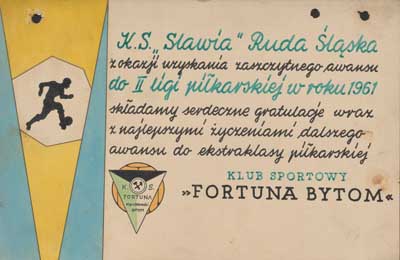 K.S. „Slavia" Ruda Śląska
z okazji uzyskania zaszczytnego awansu
do II ligi piłkarskiej w roku 1961
składamy serdeczne gratulacje wraz
z najlepszymi życzeniami dalszego
awansu do ekstraklasy piłkarskiej
KLUB SPORTOWY
»FORTUNA BYTOM«
K. S.
FORTUNA
BYTOM